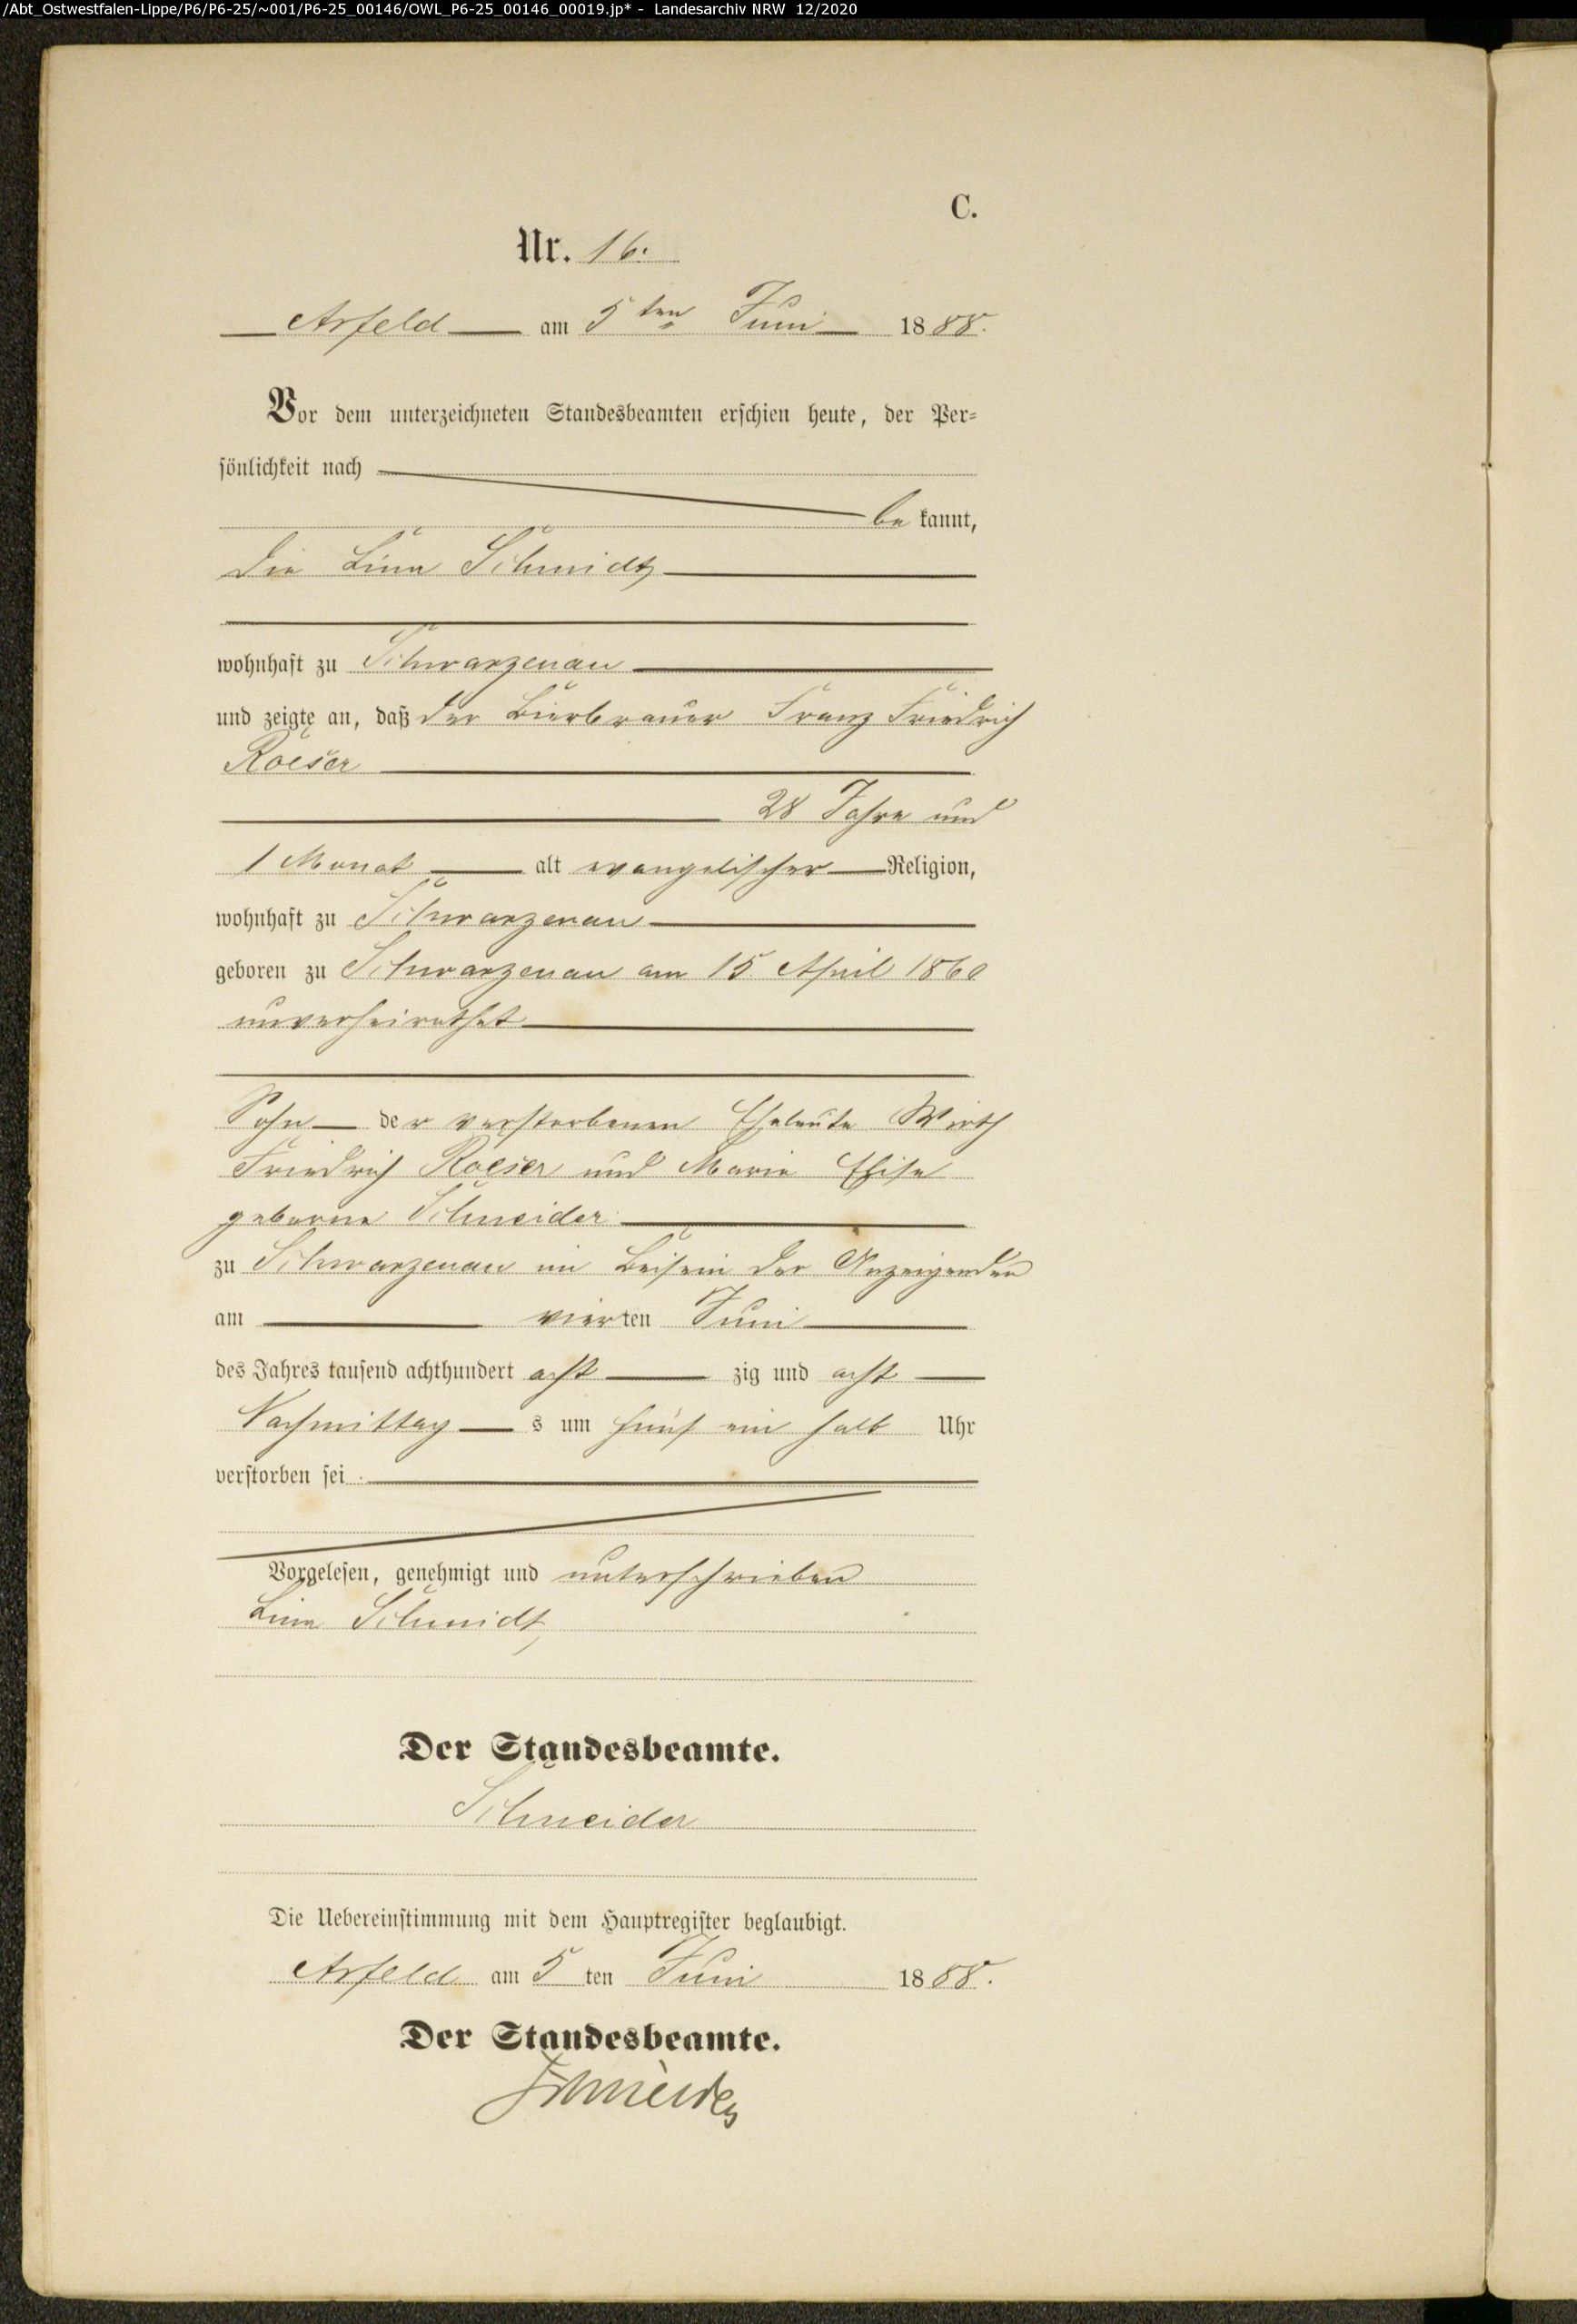 /Abt_Ostwestfalen-Lippe/P6/P6-25/~001/P6-25_00146/OWL_P6-25_00146_00019.jp* - Landesarchiv NRW 12/2020
C.
Nr. 16.
Arfeld am 5ten Juni 1888.
Vor dem unterzeichneten Standesbeamten erschien heute, der Per=
sönlichkeit nach
be kannt,
die Lina Schmidt
wohnhaft zu Schwarzenau
und zeigte an, daß der Bierbrauer Franz Friedrich
Roeser
28 Jahre und
1 Monat alt evangelischer Religion,
wohnhaft zu Schwarzenau
geboren zu Schwarzenau am 15 April 1860
unverheirathet
Sohn der verstorbenen Eheleute Wirth
Friedrich Roeser und Marie Elise
geborne Schneider
zu Schwarzenau im Beisein der Anzeigenden
am vierten Juni
des Jahres tausend achthundert acht zig und acht
Nachmittag s um fünf ein halb Uhr
verstorben sei
Vorgelesen, genehmigt und unterschrieben
Lina Schmidt
Der Standesbeamte.
Schneider
Die Uebereinstimmung mit dem Hauptregister beglaubigt.
Arfeld am 5 ten Juni 1888.
Der Standesbeamte.
Schneider